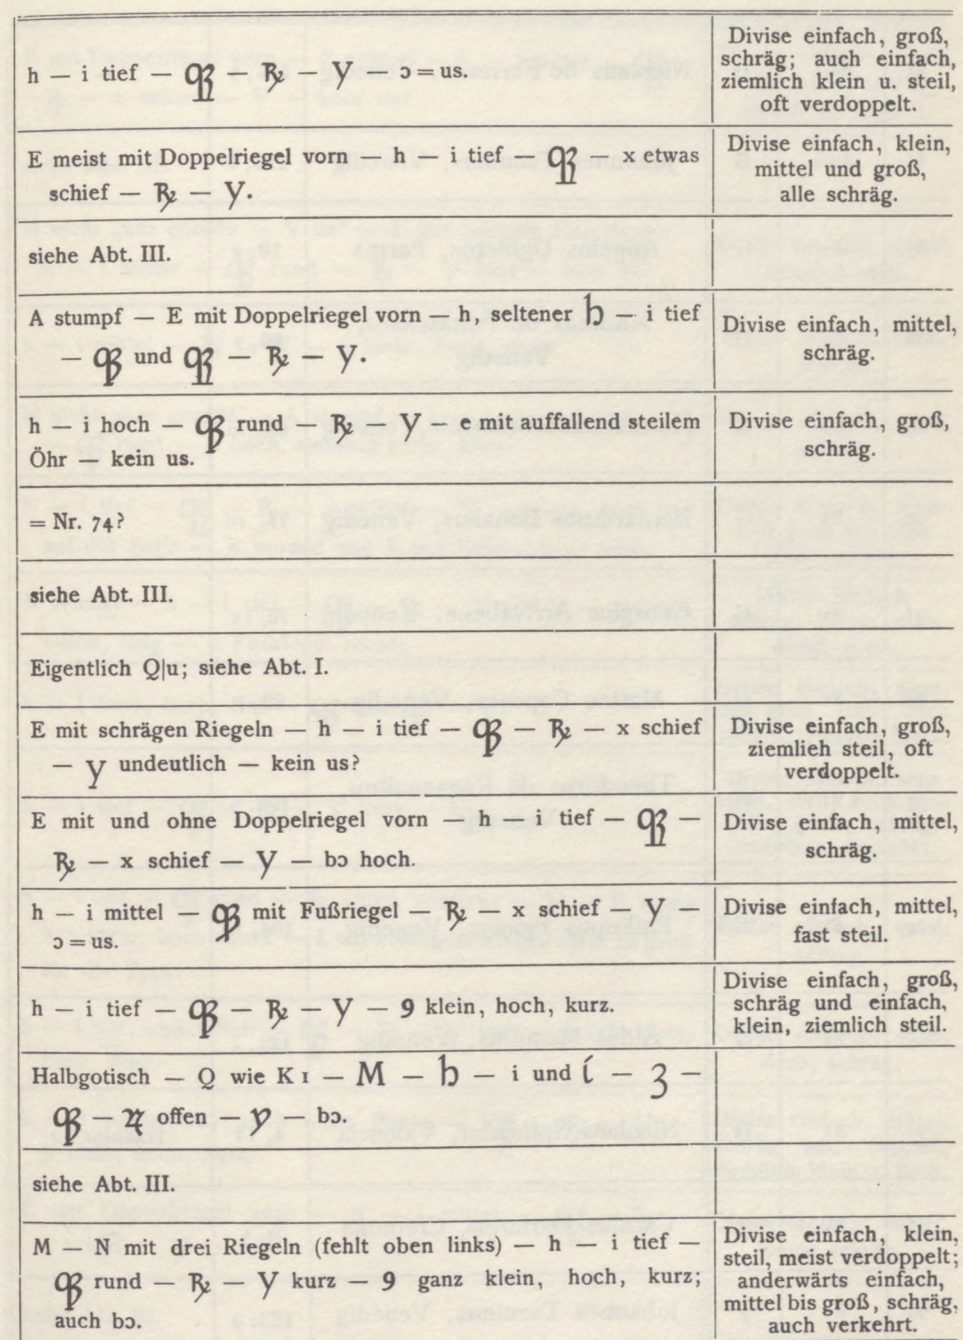 h — i tief — qꝫ ꝶ y ɔ = us.
Divise einfach, groß,
schräg; auch einfach,
ziemlich klein u. steil,
oft verdoppelt.
E meist mit Doppelriegel vorn — h — i tief qꝫ x etwas
schief — ꝶ — y.
Divise einfach, klein,
mittel und groß,
alle schräg.
siehe Abt. III.
A stumpf — E mit Doppelriegel vorn — h, seltener h — i tief
— qꝫ und qꝫ — ꝶ — y.
Divise einfach, mittel,
schräg.
h — i hoch — qꝫ rund — ꝶ — y — e mit auffallend steilem
Öhr — kein us.
Divise einfach, groß,
schräg.
= Nr. 74?
siehe Abt. III.
Eigentlich Q|u; siehe Abt. I.
E mit schrägen Riegeln — h — i tief — qꝫ — ꝶ — x schief
— y undeutlich — kein us?
Divise einfach, groß,
ziemlieh steil, oft
verdoppelt.
E mit und ohne Doppelriegel vorn — h — i tief — qꝫ —
ꝶ — x schief — y — bɔ hoch.
Divise einfach, mittel,
schräg.
h — i mittel — qꝫ mit Fußriegel — ꝶ — x schief — y —
ɔ = us.
Divise einfach, mittel,
fast steil.
h — i tief — qꝫ — ꝶ — y — 9 klein, hoch, kurz.
Divise einfach, groß,
schräg und einfach,
klein, ziemlich steil.
Halbgotisch — Q wie K 1 — M — h — i und í — ꝫ —
qꝫ — ꝶ offen — y — bɔ.
siehe Abt. III.
M — N mit drei Riegeln (fehlt oben links) — h — i tief —
qꝫ rund — ꝶ — y kurz — 9 ganz klein, hoch, kurz;
auch bɔ.
Divise einfach, klein,
steil, meist verdoppelt;
anderwärts einfach,
mittel bis groß, schräg,
auch verkehrt.